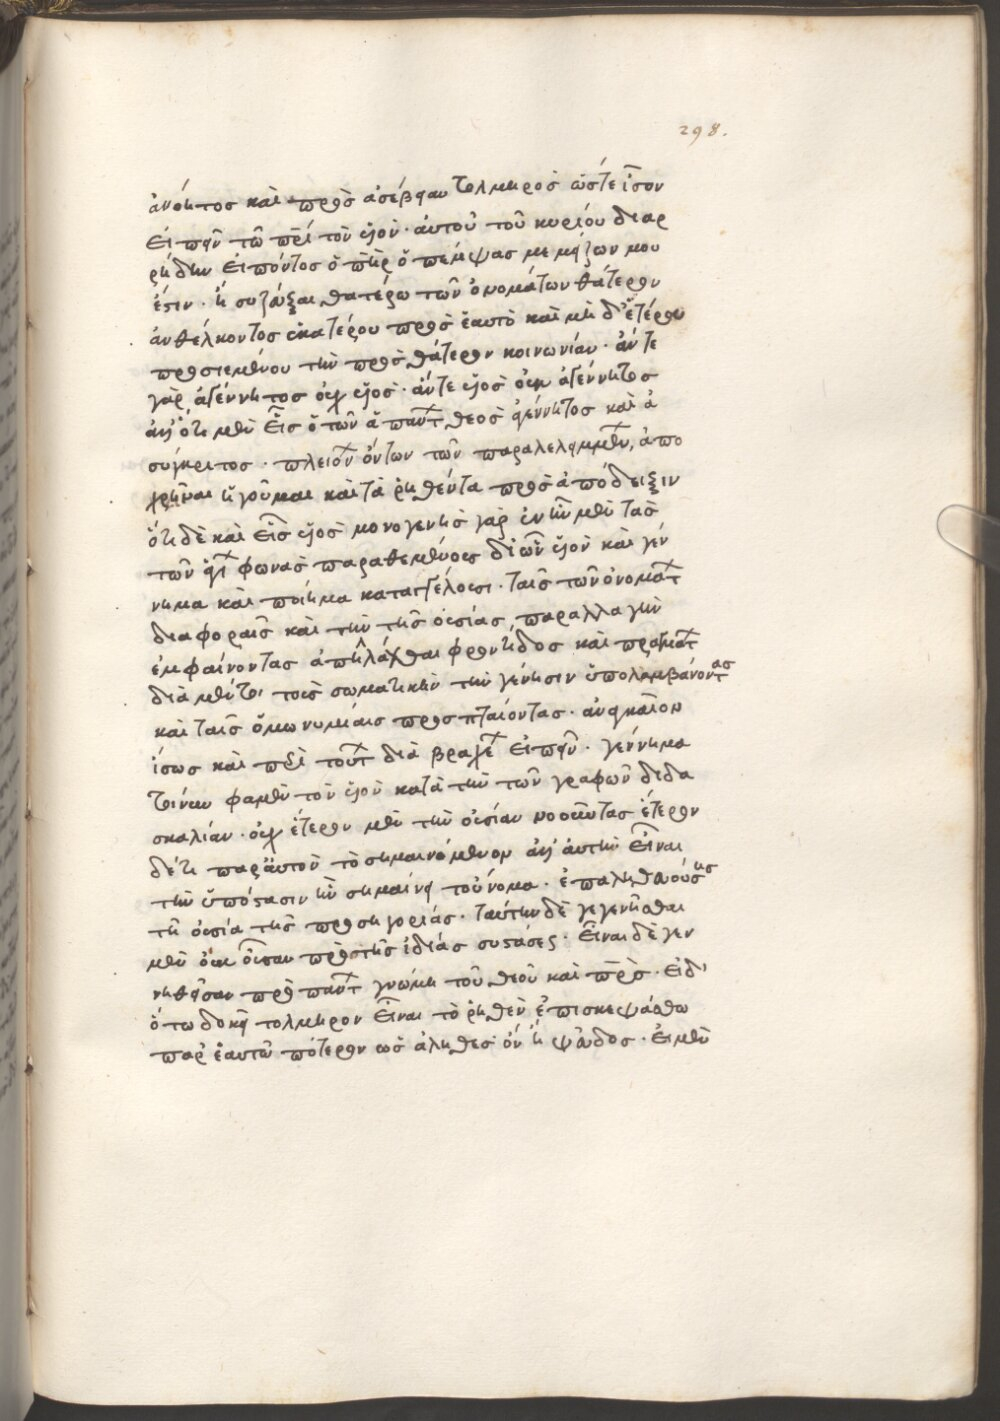 298.
ἀνόητος καὶ πρὸς ἀσέβειαν τολμηρὸς ὥστε ἶσον
εἰπεῖν τῶ πρὶ τὸν υἱὸν· αὐτοῦ τοῦ κυρίου διαρ
ρήδην εἰπόντος ὁ πὴρ ὁ πέμψας με μείζων μου
ἐστιν· ἢ συζεῦξαι θατέρω τῶν ὀνομάτων θάτερον
ἀνθέλκοντος ἑκατέρου πρὸς ἑαυτὸ καὶ μὴ δ' ἑτέρου
προσιεμένου τὴν πρὸς θάτερον κοινωνίαν· ἄν τε
γὰρ ἀγέννητος οὐχ υἱός· ἄν τε υἱὸς οὐκ ἀγέννητος
ἀλλ' ὅτι μὲν εἷς ὁ τῶν ἁπάντ θεὸς ἀγέννητος καὶ ἀ
σύγκριτος· πλειόν ὄντων τῶν παραλελειμμέν, ἀπο
χρῆναι ἡγοῦμαι καὶ τὰ ῥηθέντα πρὸς ἀπόδειξιν
ὅτι δὲ καὶ εἷς υἱὸς μονογενὴς γὰρ ἐν ἧν μὲν τὰς
τῶν ἁγί φωνὰς παραθεμένοις δι' ὧν υἱὸν καὶ γέν
νημα καὶ ποίημα καταγγέλουσι· ταῖς τῶν ὀνομάτ
διαφοραῖς καὶ τὴν τῆς οὐσίας παραλλαγὴν
ἐμφαίνοντας ἀπηλλάχθαι φροντίδος καὶ πραγμάτ
διὰ μέντοι τοὺς σωματικὴν τὴν γένησιν ὑπολαμβάνοντας
καὶ ταῖς ὁμωνυμίαις προσπταίοντας· ἀναγκαῖον
ἴσως καὶ περὶ τούτ διὰ βραχέ εἰπεῖν· γέννημα
τοίνυν φαμὲν τὸν υἱὸν κατὰ τὴν τῶν γραφῶν διδα
σκαλίαν· οὐχ ἕτερον μὲν τὴν οὐσίαν νοοῦντας ἕτερον
δέ τι παρ' αὐτὸν τὸ σημαινόμενον ἀλλ' αὐτὴν εἶναι
τὴν ὑπόστασιν ἣν σημαίνει τοὔνομα· ἐπαληθευούσης
τῆ οὐσία τῆς προσηγορίας· ταύτην δὲ γεγενῆσθαι
μὲν οὐκ οὖσαν πρὸ τῆς ἰδίας συστάσεως· εἶναι δὲ γεν
νηθεῖσαν πρὸ πάντ γνώμη τοῦ θεοῦ καὶ πρὸς· εἰ δ'
ὅτω δοκεῖ τολμηρον εἶναι τὸ ῥηθὲν ἐπισκεψάσθω
παρ' ἑαυτῶ πότερον ὡς ἀληθὲς ὂν ἢ ψεῦδος· εἰ μὲν